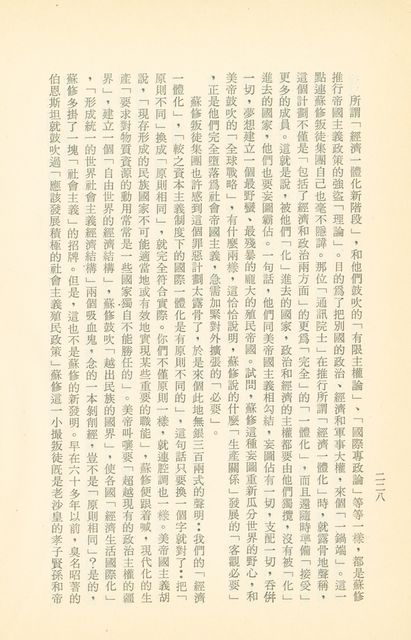 二二八
所謂「經濟一體化新階段」，和他們鼓吹的「有限主權論」、「國際專政論」等等一樣，都是蘇修
推行帝國主義政策的強盜「理論」。目的爲了把別國的政治、經濟和軍事大權，來個「一鍋端」。這一
點連蘇修叛徒集團自己也毫不隱諱。那位「通訊院士」在推行所謂「經濟一體化」時，就露骨地聲稱，
這個計劃不僅是「包括了經濟和政治兩方面」的更爲「完全」的「一體化」，而且還隨時準備「接受」
更多的成員。這就是說，被他們「化」進去的國家，政治和經濟的主權都要由他們獨攬，沒有被「化」
進去的國家，他們也要妄圖霸佔。一句話，他們同美帝國主義相勾結，妄圖佔有一切，支配一切，吞併
一切，夢想建立一個最野蠻、最殘暴的龐大的殖民帝國。試問，蘇修這種妄圖重新瓜分世界的野心，和
美帝鼓吹的「全球戰略」，有什麼兩樣，這恰恰說明，蘇修說的什麼「生產關係」發展的「客觀必要」
，正是他們完全墮落爲社會帝國主義，急需加緊對外擴張的「必要」。
蘇修叛徒集團也許感到這個罪惡計劃太露骨了，於是來個此地無銀三百兩式的聲明：我們的「經濟
一體化」，「較之資本主義制度下的國際一體化是有原則不同的」，這句話只要換一個字就對了：把「
原則不同」換成「原則相同」，就完全符合實際。你們不僅原則一樣，就連腔調也一樣。美帝國主義胡
說，「現存形成的民族國家不可能適當地或有效地實現某些重要的職能」，蘇修便跟着喊，現代化的生
產「要求對物質資源的動用常常是一些國家獨自不能勝任的」。美帝叫嚷要「超越現有的政治主權的疆
界」，建立一個「自由世界的經濟結構」，蘇修鼓吹「越出民族的國界」，使各國「經濟生活國際化」
，「形成統一的世界社會主義經濟結構」兩個吸血鬼，念的一本剝削經，豈不是「原則相同」？是的，
蘇修多掛了一塊「社會主義」的招牌。但是，這也不是蘇修的新發明。早在六十多年以前，臭名昭著的
伯恩斯坦就鼓吹過「應該發展積極的社會主義殖民政策」蘇修這一小撮叛徒既是老沙皇的孝子賢孫和帝